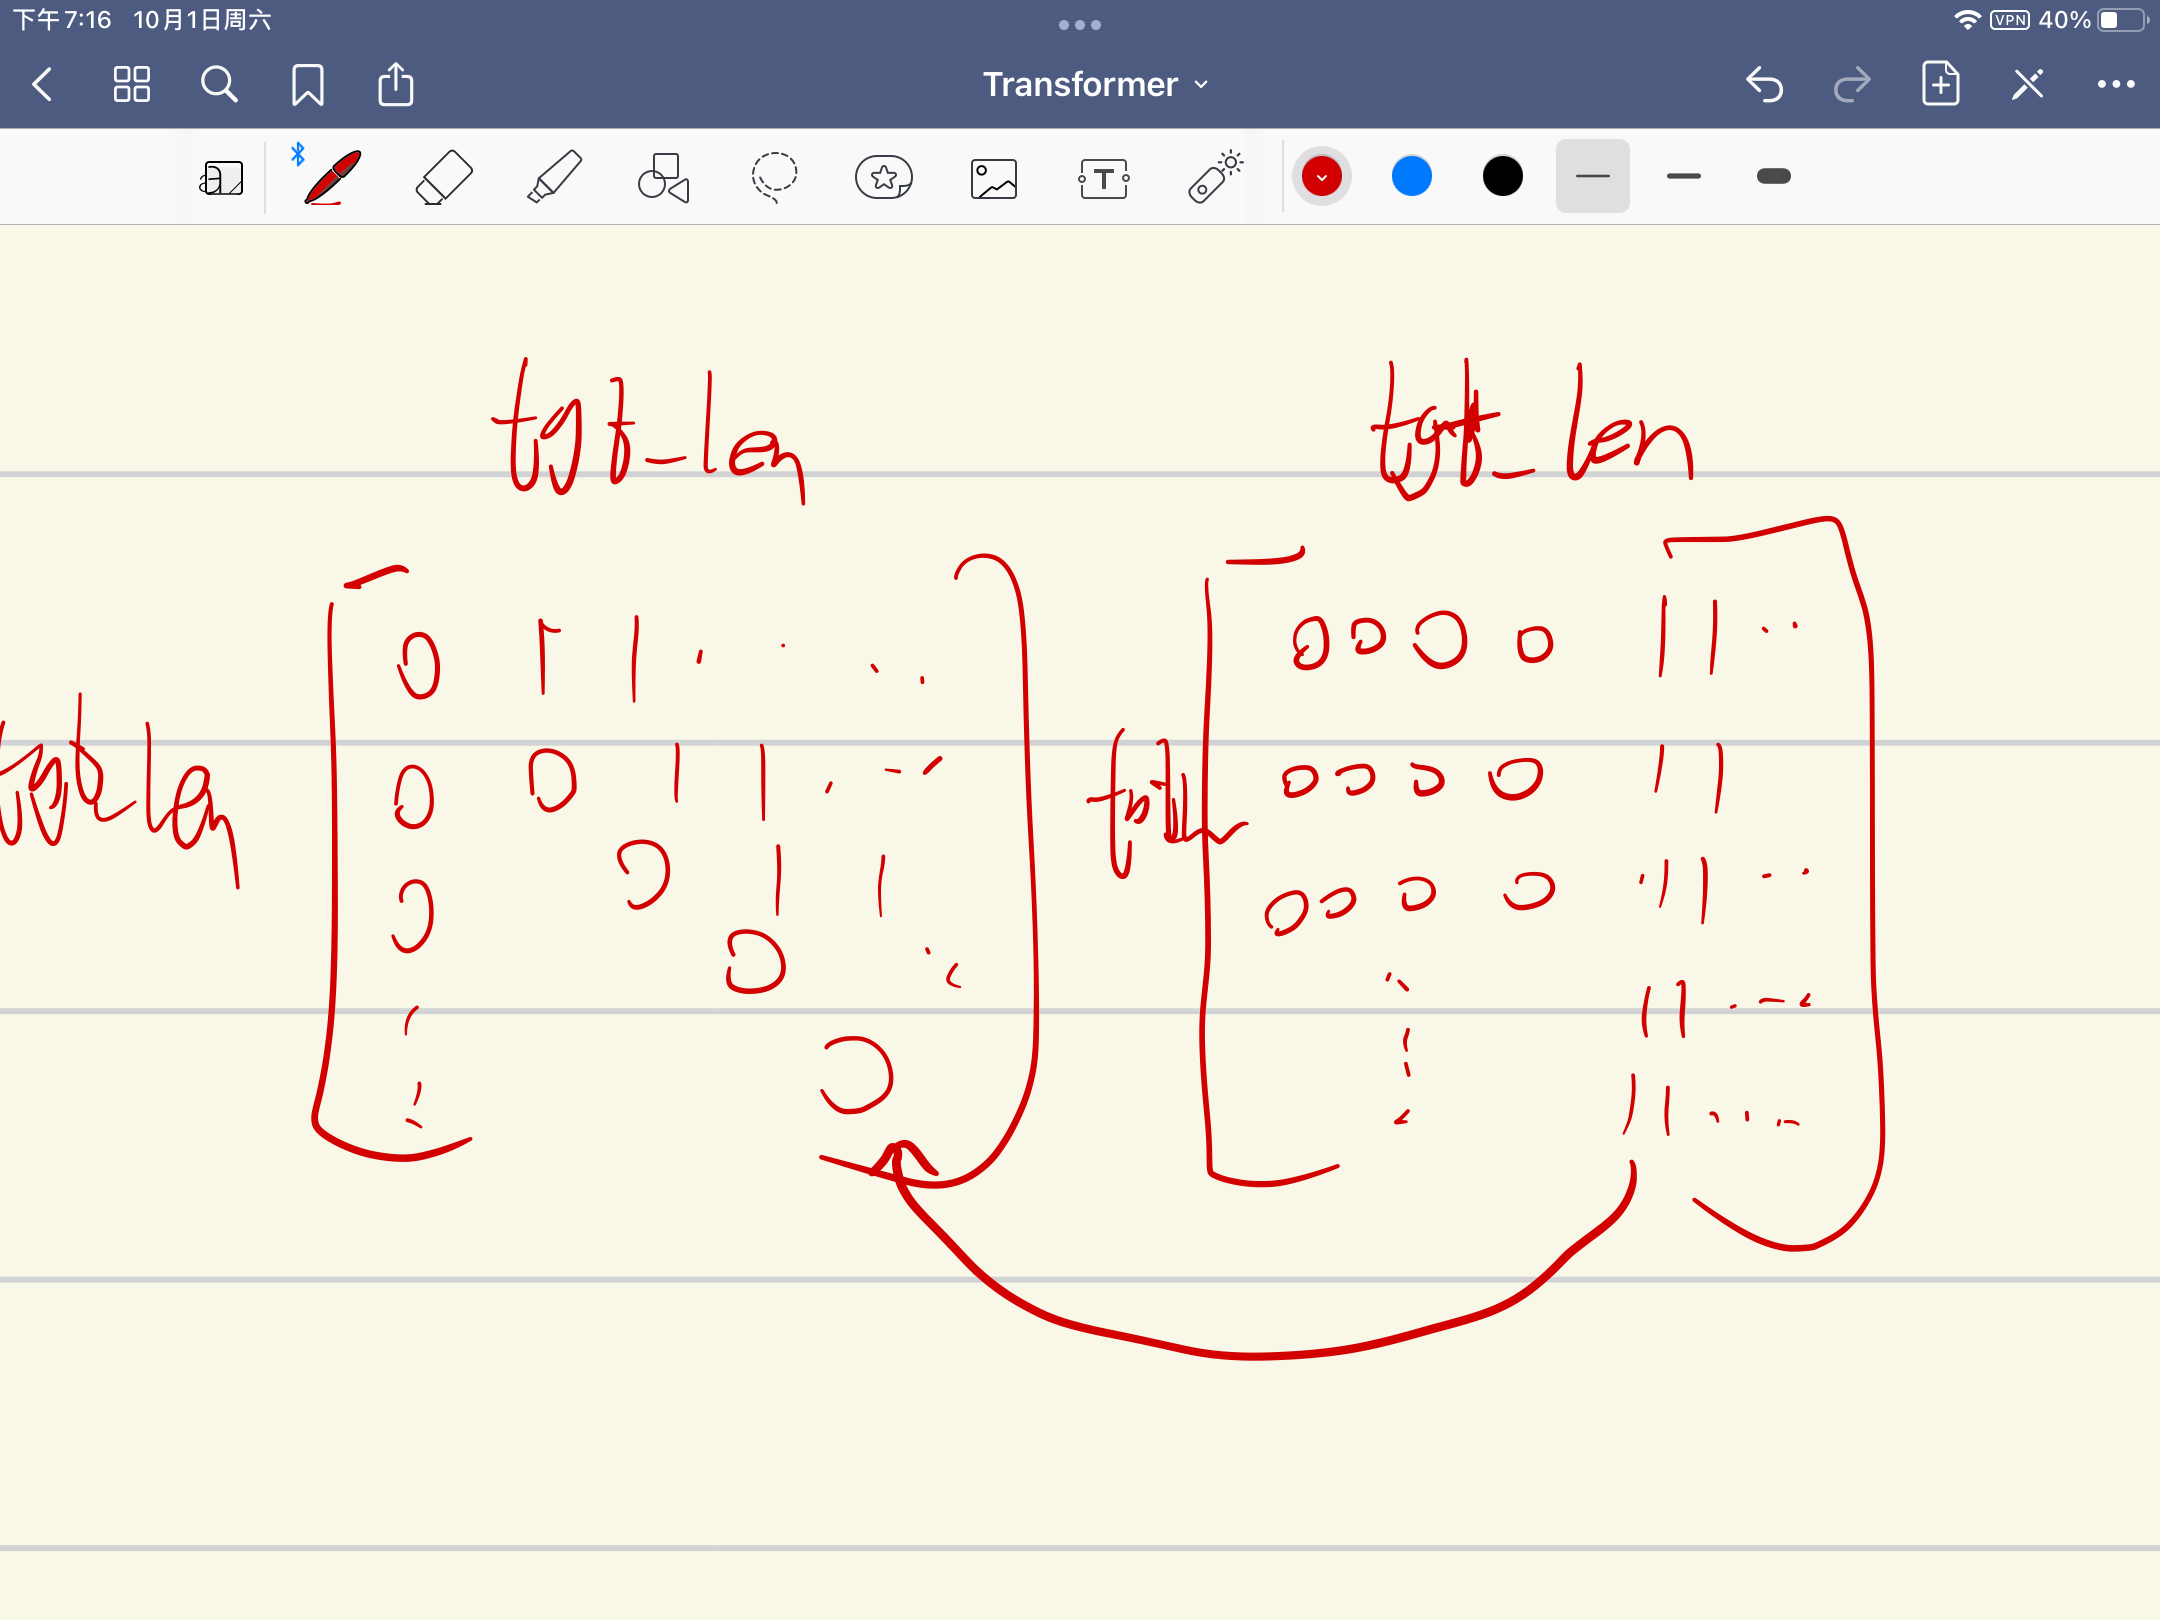 下午7:16 10月1日周六
VPN 40%
Transformer
T
tgt_len tgt_len
0 1 1 . . . . 0 0 0 0 1 1 . .
tgt_len 0 0 1 1 . - - 0 0 0 0 1 1
0 0 1 1 0 0 0 0 1 1 . .
0 1 1 . - -
0 1 1 . . . -